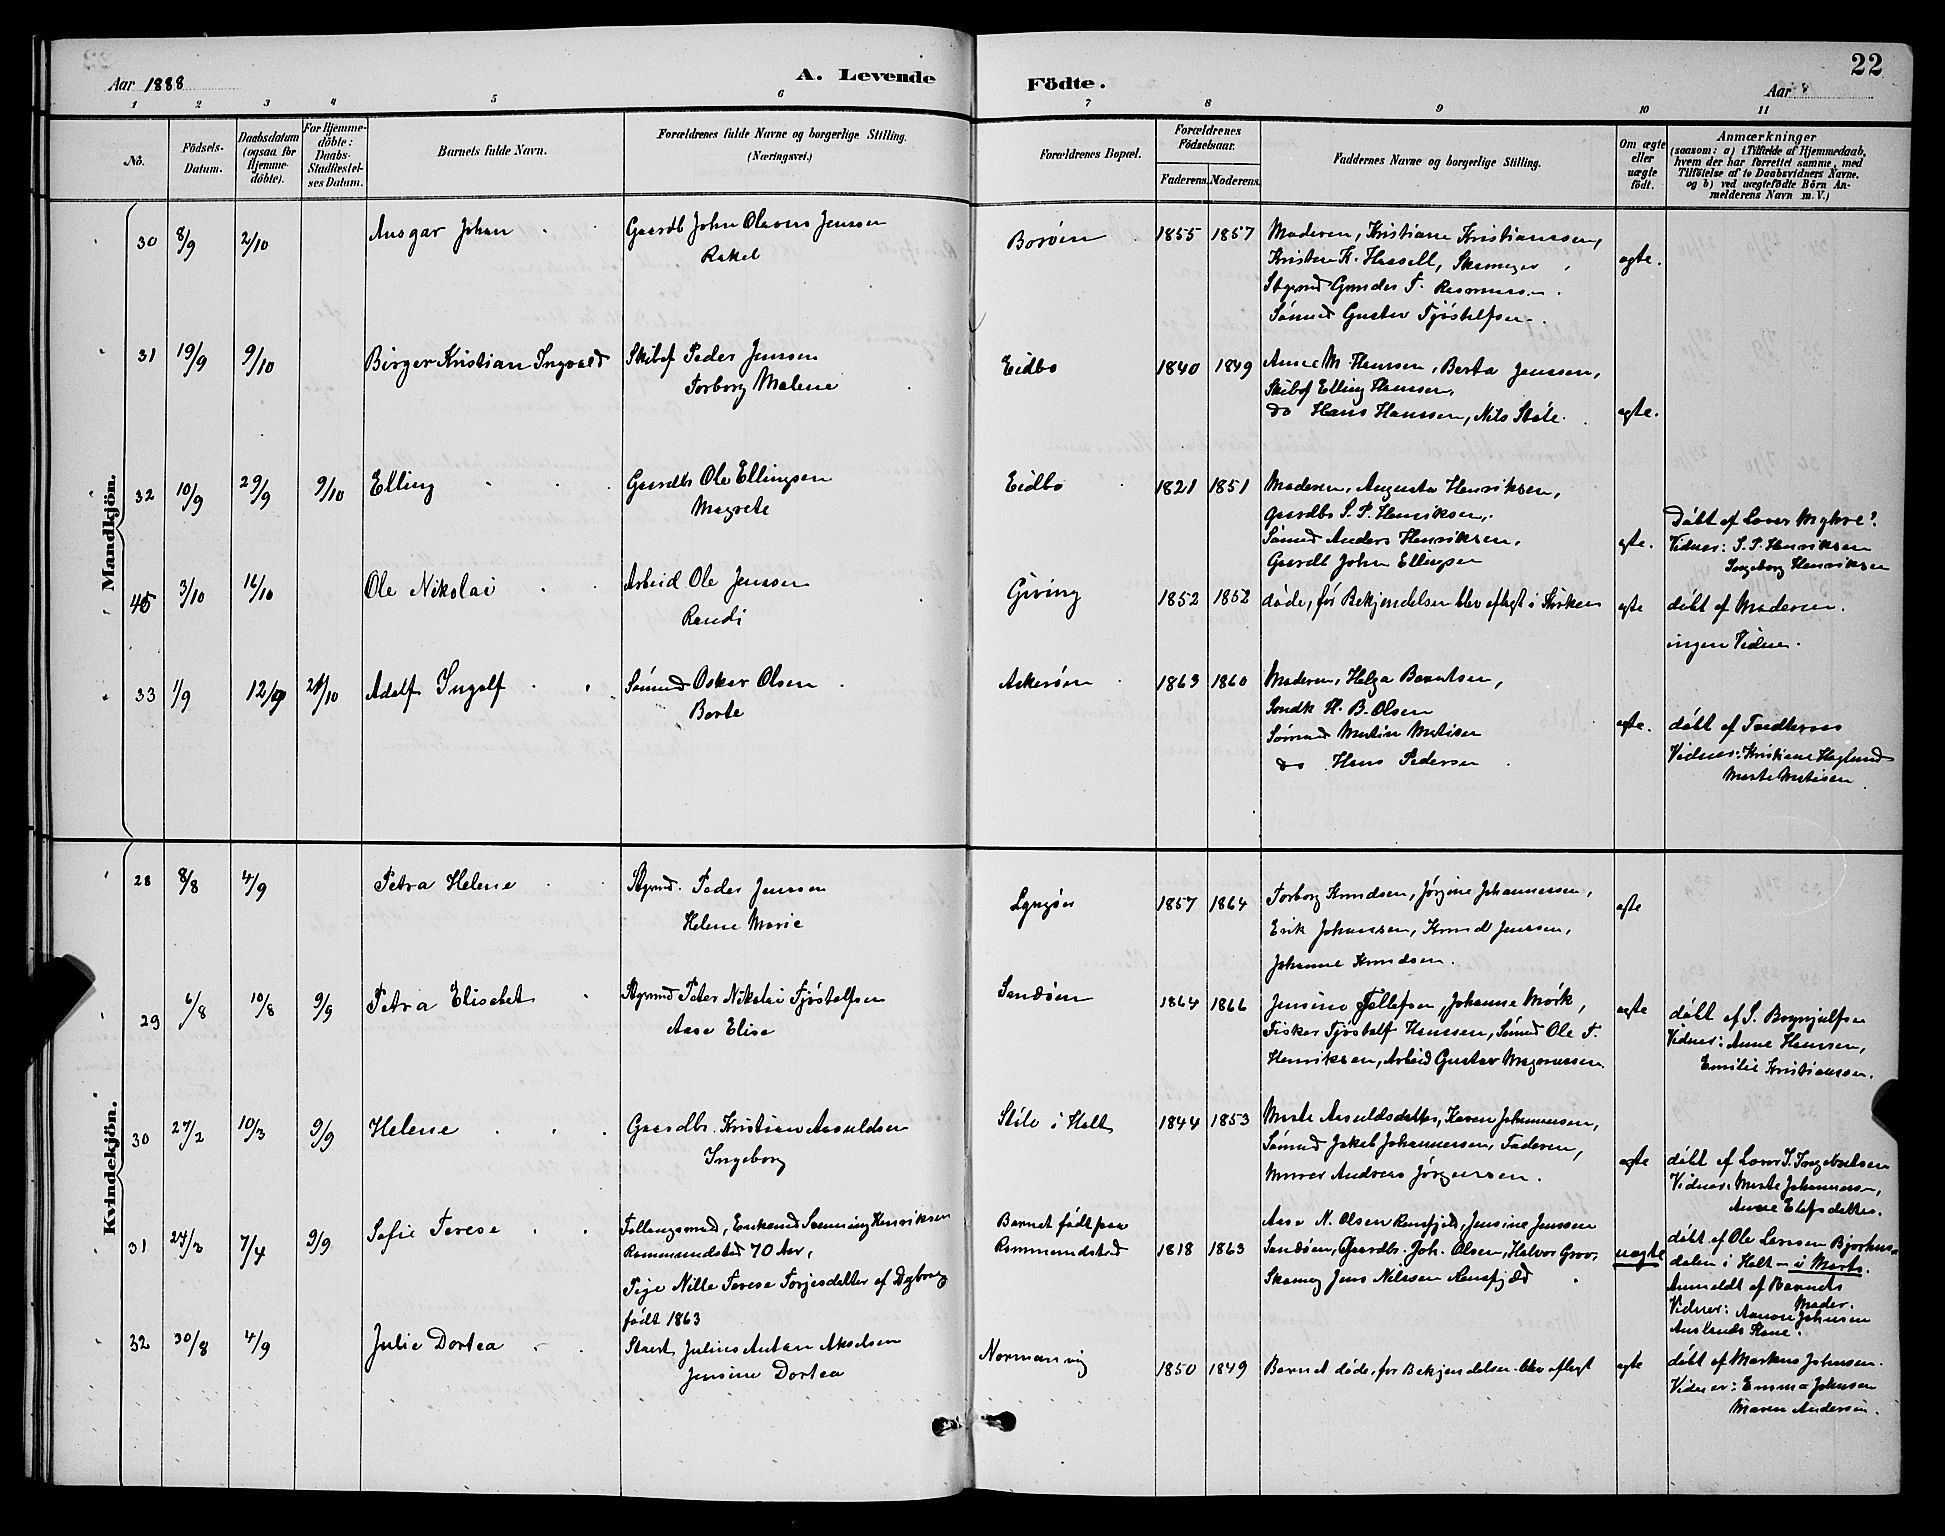 22
Aar 1888
A. Levende Födte.
Aar 8
1 2 3 4 5 6 7 8 9 10 11
No.
Födsels-Datum.
Daabsdatum (ogsaa for Hjemme-döbte).
For Hjemme-döbte: Daabs-Stadfæstel-ses Datum.
Barnets fulde Navn.
Forældrenes fulde Navne og borgerlige Stilling.
(Næringsvei.)
Forældrenes Bopæl.
Forældrenes Födselsaar.
Faderens. Moderens.
Faddernes Navne og borgerlige Stilling.
Om ægte eller uægte født.
Anmærkninger
(saasom: a) i Tilfælde af Hjemmedaab,
hvem der har forrettet samme, med
Tilföielse af to Daabsvidners Navne.
og b) ved uægtefödte Börn An-
melderens Navn m. V.)
Mandkjön.
30 8/9 2/10 Ansgar Johan Gaardb John Olavus Jensen
Rakel
Borøen 1855 1857 Moderen, Kristiane Kristianssen,
Kristen K. Hassell, Skomager
Styrmd Gunder T. Rasmussen.
Sømnd Gustav Tjøstelfsen.
ægte.
31 19/9 9/10 Birger Kristian Ingvald Skibsf Peder Jensen
Torborg Malene
Eidbo 1840 1849 Anne M. Hanssen, Berta Jenssen,
Skibsf Elling Hanssen,
do Hans Hanssen, Nils Støle.
ægte.
32 10/9 29/9 9/10 Elling Gaardbr Ole Ellingsen
Magrete
Eidbo 1821 1851 Moderen, Augusta Henriksen,
Gaardbr S. P. Henriksen,
Sømnd Anders Henriksen,
Gaardb John Ellingsen
ægte.
Døbt af Lærer Myhre?
Vidner: S. P. Henriksen
Ingeborg Henriksen
45 3/10 16/10 Ole Nikolai Arbeid Ole Jenssen
Randi
Giving 1852 1852 døde, før Bekjendelsen blev aflagt i Kirken ægte døbt af Moderen.
ingen Vidner.
33 1/9 12/9 21/10 Adolf Ingolf Sømnd Oskar Olsen
Berte
Askerøen 1863 1860 Moderen, Helga Berntsen,
H. B. Olsen
Sømnd Martin Matisen
do Hans Pedersen
ægte.
døbt af
Vidner: Kristiane Haglund
Marte Matisen
Kvindekjön.
28 8/8 4/9 Petra Helene Styrmd. Peder Jenssen
Helene Marie
Lyngør 1857 1864 Torborg Knudsen, Jørgine Johannessen,
Erik Johanssen, Knud Jenssen,
Johanne Knudsen.
ægte
29 6/8 10/8 9/9 Petra Elisabet Styrmd Peter Nikolai Tjøstelfsen
Aase Elise
Sandøen 1864 1866 Jensine Tellefsen, Johanne Mørk,
Fisker Tjøstolf Hanssen, Sømnd Ole T.
Henriksen, Arbeid Gustav Magnussen
ægte
døbt af S. Brynjulfsen
Vidner: Anne Hanssen,
Emilie Kristianssen.
30 27/2 10/3 9/9 Helene Gaardbr. Kristian Aasuldsen
Ingeborg
Støle i Holt 1844 1853 Marte Aasuldsdatter, Karen Johannessen,
Sømnd Jakob Johannessen, Faderen,
Murer Andreas Jørgensen.
ægte
døbt af Lærer I. Ingebretsen
Vidner: Marte Johannessen,
Anne Elefsdatter.
31 24/3 7/4 9/9 Sofie Terese Fallengsmd, Enkemd Henriksen
Rommundstad 70 Aar,
Pige Nille Terese Torjesdatter af Dybvaag
født 1863
Barnet født paa
Rommundstad 1818 1863 Aase N. Olsen Ramfjeld, Jensine Jenssen
Sandøen, Gaardbr. Joh. Olsen, Halvor Grov,
Skomag Jens Nilssen Ramfjeld
uægte
døbt af Ole Larssen Bjorhus-
dalen i Holt – i Marts.
Anmeldt af Barnets
Moder.
Vidner: Aanon Johnsen
Auslands Kone.
32 30/8 4/9 Julie Dortea Julius Anton Akselsen
Jensine Dortea
Normanvig 1850 1849 Barnet døde, før Bekjendelsen blev aflagt ægte døbt af Markus Johnsen.
Vidner: Emma Johnsen
Maren Andersen.